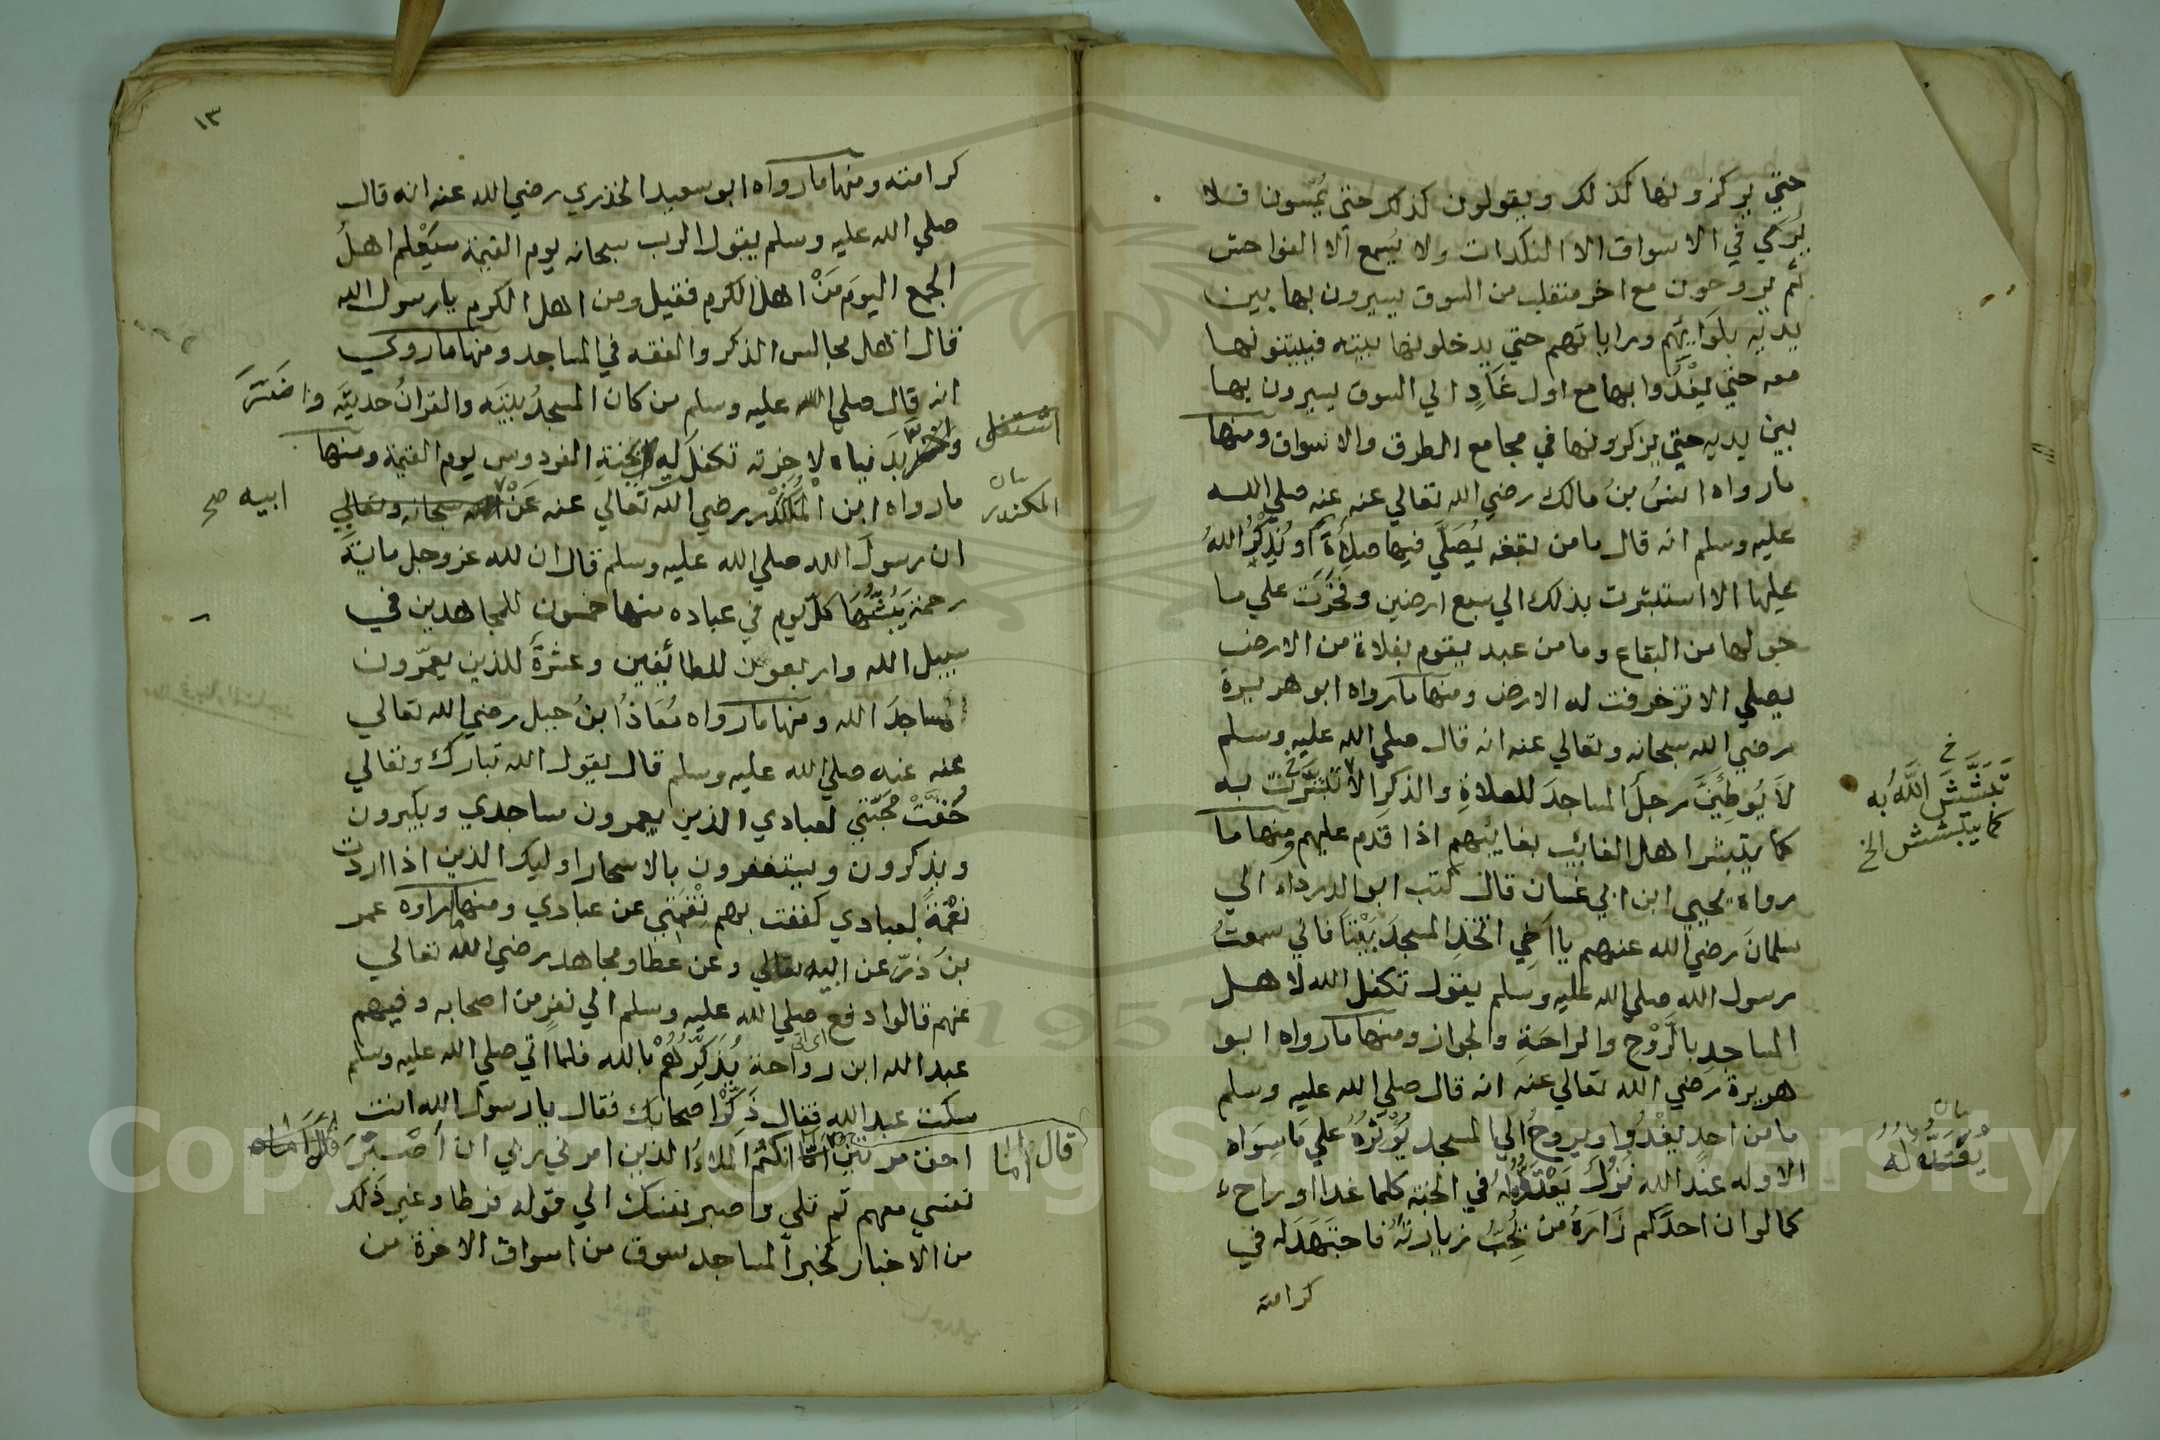 حتي يركزونها كذلك ويقولون كذلك حتي يمسون فلا
يُركي في الاسواق الا النكدات ولا يسمع الا الفواحش
ثم يروحون مع اخر منقلب من السوق يسيرون بها بين
يديه بلوايهم وراياتهم حتي يدخلونها بيته فيبيتونها
معه حتي يغدوا بها مع اول غادٍ الي السوق يسيرون بها
بين يديه حتي يركزونها في مجامع الطرق والاسواق ومنها
مارواه انسُ بنُ مالك رضي الله تعالي عنه عنه صلي الله
عليه وسلم انه قال ما من بقعه يُصَلَّي فيها صلاةٌ او يُذْكَرُ اللهُ
عليها الا استبشرت بذلك الي سبع ارضين وفَخَرَت علي ما
حولها من البقاع وما من عبد يقوم بفلاة من الارض
يصلي الا تزخرفت له الارض ومنها مارواه ابو هريرة
رضي الله سبحانه وتعالي عنه انه قال صلي الله عليه وسلم
لا يُوطِئَنَّ رجل المساجدَ للصلاةِ والذكرِ الا تبشرت به
كما يتبشر اهل الغائب بغايبهم اذا قدم عليهم ومنها ما
رواه يحيي ابن ابي غسان قال كتب ابو الدرداء الي
سلمانَ رضي الله عنهم يا اخي اتخذِ المسجدَ بَيْتًا فاني سمعتُ
رسول الله صلي الله عليه وسلم يقول تكفل الله لاهل
المساجدِ بالرَّوْحِ والراحَةِ والجواز ومنها مارواه ابو
هريرة رضي الله تعالي عنه انه قال صلي الله عليه وسلم
ما من احدٍ يغْدُوا ويروحُ الي المسجد يُؤْثِرُهُ علي مَا سِوَاه
الا وله عند الله نُزُلٌ يَعْتَدُّ لهُ في الجنة كلما غدا او راح
كما لو ان احدَكم زَارَهُ مَنْ يُحِبُّ زيارتَهُ فاجتَهَدَ له في
كرامته
خ
تَبَشَّشَ اللَّهُ بِه
كما يتبشش الخ
بيان
١٣
كرامته ومنها مارواه ابو سعيد الخذري رضي الله عنه انه قال
صلي الله عليه وسلم يقول الرب سبحانه يوم القيمة سيَعْلم اهلُ
الجمع اليومَ مَنْ اهل الكرم فقيل ومن اهل الكرم يا رسول الله
قال اهل مجالس الذكر والفقه في المساجد ومنها ماروي
انه قال صلي الله عليه وسلم من كان المسجدُ بيتَه والقرانُ حديثَه
دنياه لاخرته تكفل له بجنةِ الفردوس يوم القيمة ومنها
مارواه ابن المُنْكَدْرِ رضي الله تعالي عنه عَنْ
ابيه صح
بيان
المكندر
ان رسول الله صلي الله عليه وسلم قال ان لله عز وجل مايةَ
رحمة يَبُثُّهَا كل يوم في عباده منها خمسون للمجاهدين في
سبيل الله واربعون للطائفين وعشرةً للذين يعمّرون
المساجدَ الله ومنها مارواه مُعَاذُ ابنُ جبل رضي الله تعالي
عنه عنه صلي الله عليه وسلم قال يقول الله تبارك وتعالي
حُقَّتْ مَحَبَّتي لعبادي الذين يعمرون مساجدي ويكبرون
ويذكرون ويستغفرون بالاسحار اوليك الذين اذا اردت
نقْمَةً بعبادي كففت بهم نِقْمَتي عن عبادي ومنها مارواه عمر
بنُ ذَرّ عن ابيه تعالي وعن عطا ومجاهد رضي الله تعالي
عنهم قالوا دفع صلي الله عليه وسلم الي نفرٍ من اصحابه وفيهم
عبد الله ابن رواحة يُذَكِّرُهُمْ بالله فلما اتي صلي الله عليه وسلم
سكت عبد الله فقال ذَكِّرْ اصحابك فقال يا رسول الله انت
احق مرتين
قال اما انكُم الملاءُ الذين امرني ربي ان اصْبِرَ
نفسي معهم ثم تلي واصبر نفسك الي قوله فرطا وغير ذلك
من الاخبار كخبر المساجد سوق من اسواق الاخرة من
Copyright © King Saud University
1957